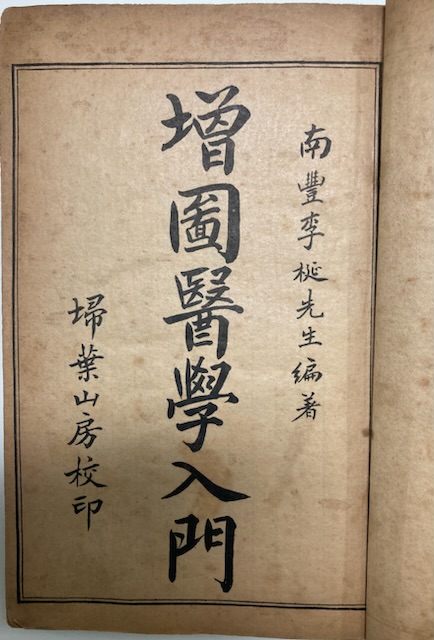 南豐李梴先生編著
增圖醫學入門
埽葉山房校印